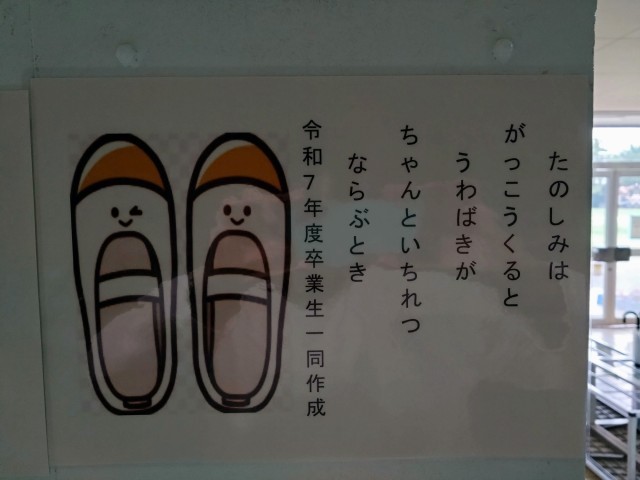 たのしみは
がっこうくると
うわばきが
ちゃんといちれつ
ならぶとき
令和7年度卒業生一同作成